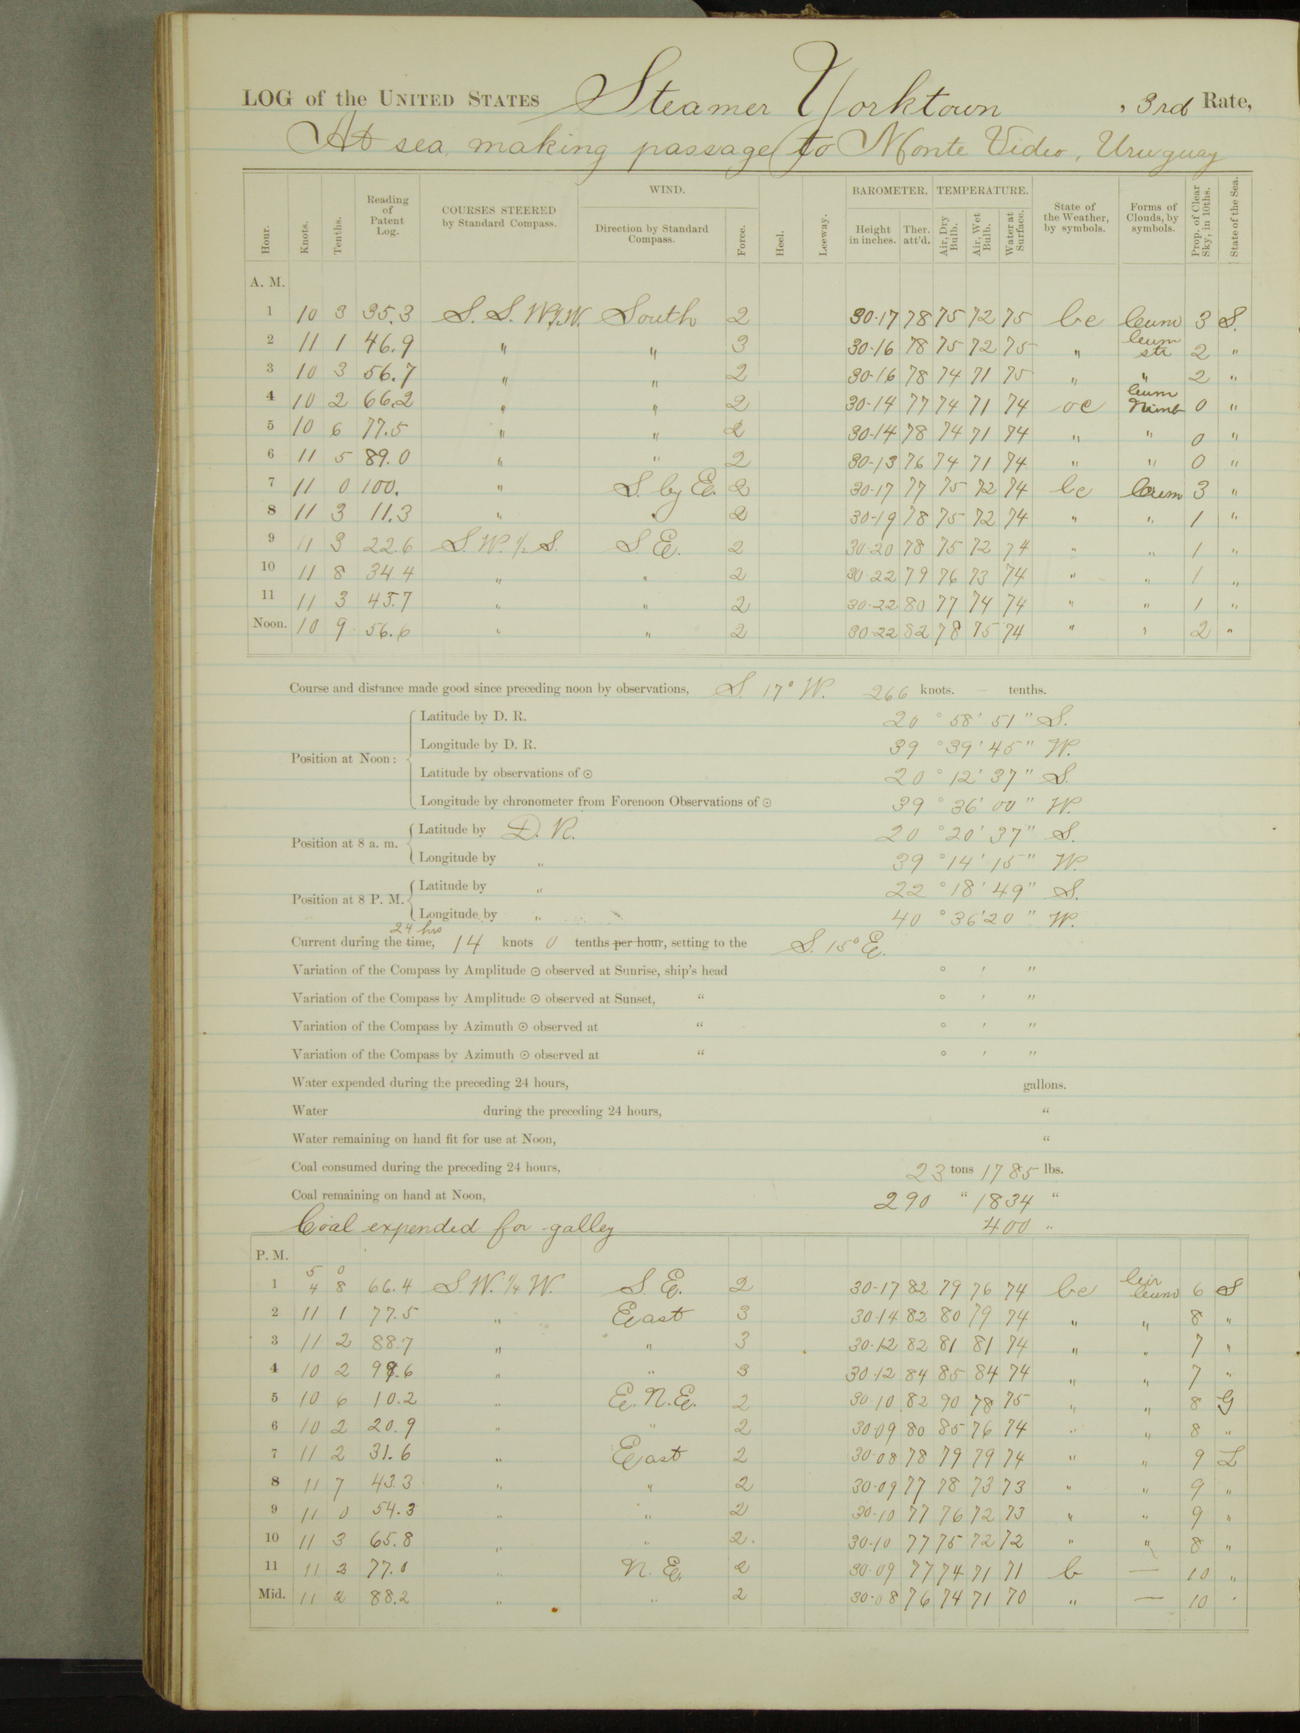 LOG of the UNITED STATES Steamer Yorktown, 3rd Rate,
At sea, making passage to Monte Video, Uruguay
Hour. Knots. Tenths. Reading of Patent Log. COURSES STEERED by Standard Compass. WIND. Direction by Standard Compass. Force. Heel. Leeway. BAROMETER. Height in inches. Ther. att'd. TEMPERATURE. Air, Dry Bulb. Air, Wet Bulb. Water at Surface. State of the Weather, by symbols. Forms of Clouds, by symbols. Prop. of Clear Sky, in 10ths. State of the Sea.
A. M.
1 10 3 35.3 South 2 30.17 78 75 72 75 bc cum 3 S.
2 11 1 46.9 " " 3 30.16 78 75 72 75 " cum str 2 "
3 10 3 56.7 " " 2 30.16 78 74 71 75 " " 2 "
4 10 2 66.2 " " 2 30.14 77 74 71 74 oc cum Nimb 0 "
5 10 6 77.5 " " 2 30.14 78 74 71 74 " " 0 "
6 11 5 89.0 " " 2 30.13 76 74 71 74 " " 0 "
7 11 0 100. " S. by E. 2 30.17 77 75 72 74 bc cum 3 "
8 11 3 11.3 " " 2 30.19 78 75 72 74 " " 1 "
9 11 3 22.6 S.E. 2 30.20 78 75 72 74 " " 1 "
10 11 8 34.4 " " 2 30.22 79 76 73 74 " " 1 "
11 11 3 45.7 " " 2 30.22 80 77 74 74 " " 1 "
Noon. 10 9 56.6 " " 2 30.22 82 78 75 74 " " 2 "
Course and distance made good since preceding noon by observations, S. 17° W. 266 knots. — tenths.
Position at Noon:
Latitude by D. R. 20 ° 58 ' 51 " S.
Longitude by D. R. 39 ° 39 ' 45 " W.
Latitude by observations of ☉ 20 ° 12 ' 37 " S.
Longitude by chronometer from Forenoon Observations of ☉ 39 ° 36 ' 00 " W.
Position at 8 a. m.
Latitude by D. R. 20 ° 20 ' 37 " S.
Longitude by " 39 ° 14 ' 15 " W.
Position at 8 P. M.
Latitude by " 22 ° 18 ' 49 " S.
Longitude by " 40 ° 36 ' 20 " W.
24 hrs
Current during the time, 14 knots 0 tenths per hour, setting to the S. 15° E.
Variation of the Compass by Amplitude ☉ observed at Sunrise, ship's head ° ' "
Variation of the Compass by Amplitude ☉ observed at Sunset, " ° ' "
Variation of the Compass by Azimuth ☉ observed at " ° ' "
Variation of the Compass by Azimuth ☉ observed at " ° ' "
Water expended during the preceding 24 hours, gallons.
Water during the preceding 24 hours, "
Water remaining on hand fit for use at Noon, "
Coal consumed during the preceding 24 hours, 23 tons 1785 lbs.
Coal remaining on hand at Noon, 290 " 1834 "
Coal expended for galley 400 "
P. M.
5 0
1 4 8 66.4 S.W. 1/4 W. S.E. 2 30.17 82 79 76 74 bc cir cum 6 S
2 11 1 77.5 " East 3 30.14 82 80 79 74 " " 8 "
3 11 2 88.7 " " 3 30.12 82 81 81 74 " " 7 "
4 10 2 99.6 " " 3 30.12 84 85 84 74 " " 7 "
5 10 6 10.2 " E.N.E. 2 30.10 82 90 78 75 " " 8 G
6 10 2 20.9 " " 2 30.09 80 85 76 74 " " 8 "
7 11 2 31.6 " East 2 30.08 78 79 79 74 " " 9 L
8 11 7 43.3 " " 2 30.09 77 78 73 73 " " 9 "
9 11 0 54.3 " " 2 30.10 77 76 72 73 " " 9 "
10 11 3 65.8 " " 2. 30.10 77 75 72 72 " " 8 "
11 11 2 77.0 " N.E. 2 30.09 77 74 71 71 b — 10 "
Mid. 11 2 88.2 " " 2 30.08 76 74 71 70 " — 10 "